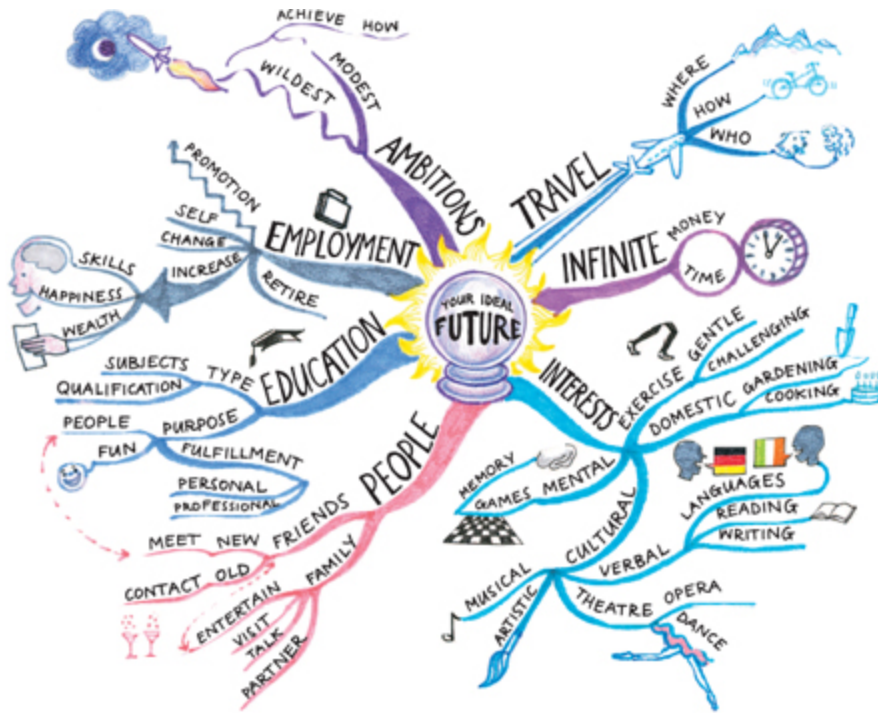 YOUR IDEAL
FUTURE
AMBITIONS
MODEST
WILDEST
ACHIEVE HOW
TRAVEL
WHERE
HOW
WHO
INFINITE
MONEY
TIME
INTERESTS
EXERCISE
GENTLE
CHALLENGING
DOMESTIC
GARDENING
COOKING
MENTAL
MEMORY
GAMES
CULTURAL
VERBAL
LANGUAGES
READING
WRITING
THEATRE
OPERA
DANCE
ARTISTIC
MUSICAL
PEOPLE
FRIENDS
MEET NEW
CONTACT OLD
FAMILY
ENTERTAIN
VISIT
TALK
PARTNER
EDUCATION
TYPE
SUBJECTS
QUALIFICATION
PURPOSE
PEOPLE
FUN
FULFILLMENT
PERSONAL
PROFESSIONAL
EMPLOYMENT
PROMOTION
SELF
CHANGE
INCREASE
SKILLS
HAPPINESS
WEALTH
RETIRE